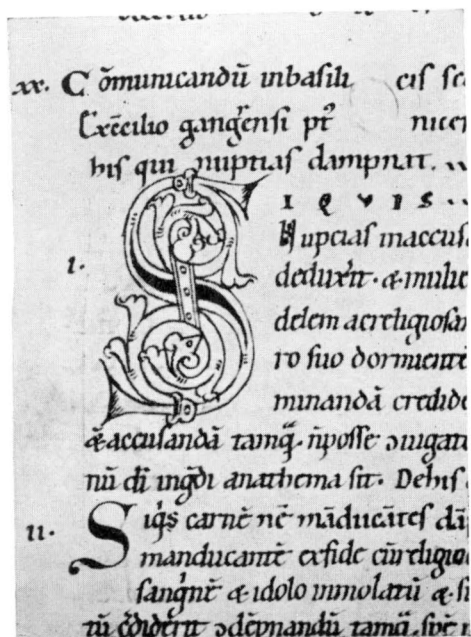 xx. Cōmunicandū inbasili cis sc
Exc̄cilio gangrensi pt᷒ nicen
his qui nuptias dampnat.
S I Q V I S
Nupcias inaccus
deduxerit & mulie
delem acreligiosam
ro suo dormiente
minandā credide
& accusandā tamq̄ n̄posse ɔiugati
nū dī ingdi anathema sit. Dehis
ii. Siq̄s carnē nē māducātes dā
manducantē exfide cūreligion
sangnē & idolo inmolatū & s
tū c̄diderit ɔdēpnandū tamq̄